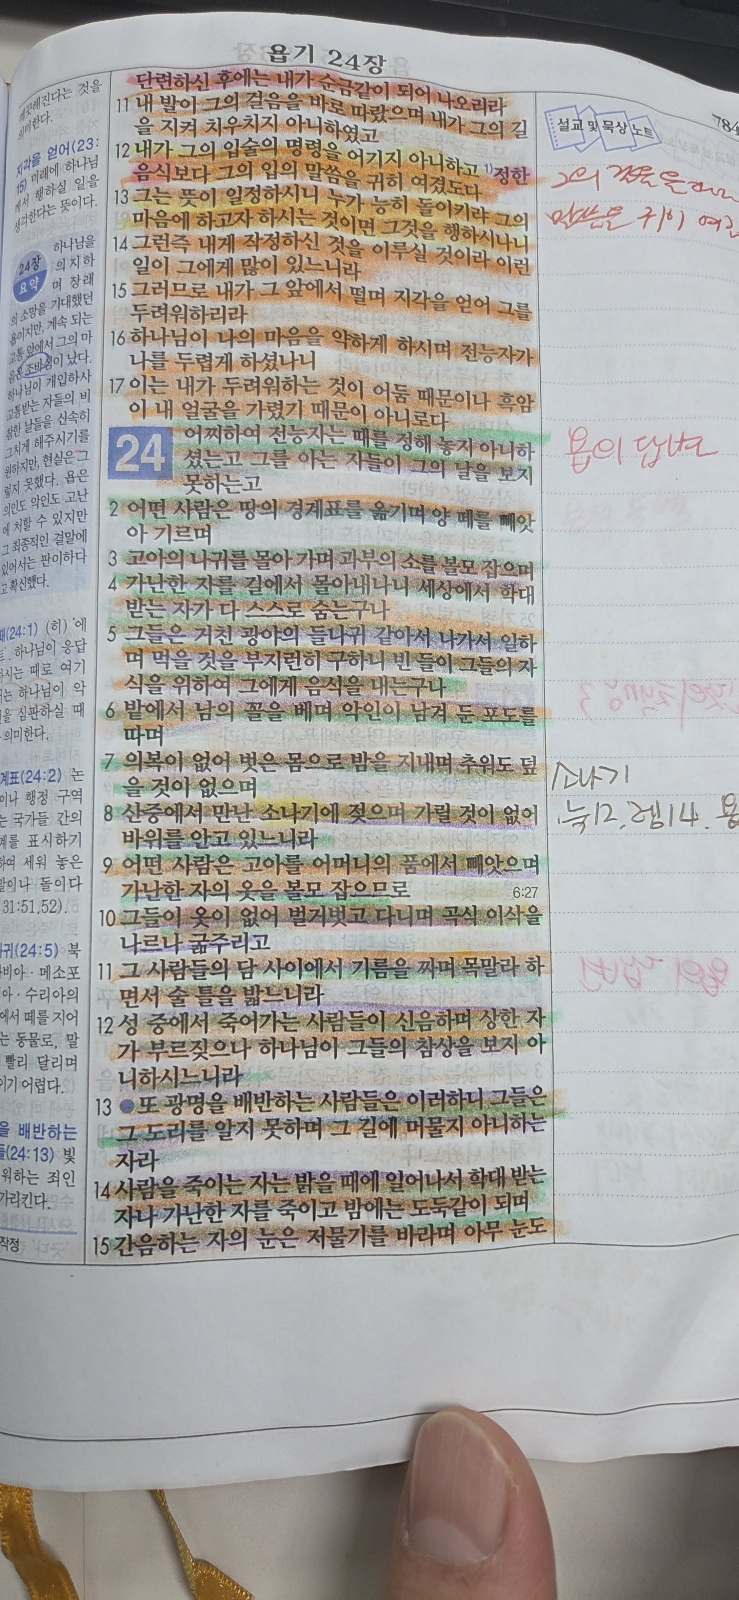 욥기 24장
784
설교 및 묵상 노트
단련하신 후에는 내가 순금같이 되어 나오리라
11 내 발이 그의 걸음을 바로 따랐으며 내가 그의 길
을 지켜 치우치지 아니하였고
12 내가 그의 입술의 명령을 어기지 아니하고 1)정한
음식보다 그의 입의 말씀을 귀히 여겼도다
13 그는 뜻이 일정하시니 누가 능히 돌이키랴 그의
마음에 하고자 하시는 것이면 그것을 행하시나니
14 그런즉 내게 작정하신 것을 이루실 것이라 이런
일이 그에게 많이 있느니라
15 그러므로 내가 그 앞에서 떨며 지각을 얻어 그를
두려워하리라
16 하나님이 나의 마음을 약하게 하시며 전능자가
나를 두렵게 하셨나니
17 이는 내가 두려워하는 것이 어둠 때문이나 흑암
이 내 얼굴을 가렸기 때문이 아니로다
24 어찌하여 전능자는 때를 정해 놓지 아니하
셨는고 그를 아는 자들이 그의 날을 보지
못하는고
2 어떤 사람은 땅의 경계표를 옮기며 양 떼를 빼앗
아 기르며
3 고아의 나귀를 몰아 가며 과부의 소를 볼모 잡으며
4 가난한 자를 길에서 몰아내나니 세상에서 학대
받는 자가 다 스스로 숨는구나
5 그들은 거친 광야의 들나귀 같아서 나가서 일하
며 먹을 것을 부지런히 구하니 빈 들이 그들의 자
식을 위하여 그에게 음식을 내는구나
6 밭에서 남의 꼴을 베며 악인이 남겨 둔 포도를
따며
7 의복이 없어 벗은 몸으로 밤을 지내며 추워도 덮
을 것이 없으며
8 산중에서 만난 소나기에 젖으며 가릴 것이 없어
바위를 안고 있느니라
9 어떤 사람은 고아를 어머니의 품에서 빼앗으며
가난한 자의 옷을 볼모 잡으므로 6:27
10 그들이 옷이 없어 벌거벗고 다니며 곡식 이삭을
나르나 굶주리고
11 그 사람들의 담 사이에서 기름을 짜며 목말라 하
면서 술 틀을 밟느니라
12 성 중에서 죽어가는 사람들이 신음하며 상한 자
가 부르짖으나 하나님이 그들의 참상을 보지 아
니하시느니라
13 ●또 광명을 배반하는 사람들은 이러하니 그들은
그 도리를 알지 못하며 그 길에 머물지 아니하는
자라
14 사람을 죽이는 자는 밝을 때에 일어나서 학대 받는
자나 가난한 자를 죽이고 밤에는 도둑같이 되며
15 간음하는 자의 눈은 저물기를 바라며 아무 눈도
해진다는 것을
의미한다.
지각을 얻어(23:
15) 미래에 하나님
께서 행하실 일을
생각한다는 뜻이다.
24장
요약
하나님을
의지하
며 장래
의 소망을 기대했던
욥이지만, 계속 되는
고통 앞에서 그의 마
음은 조바심이 났다.
하나님이 개입하사
고통받는 자들의 비
참한 날들을 신속히
그치게 해주시기를
원하지만, 현실은 그
렇지 못했다. 욥은
의인도 악인도 고난
에 처할 수 있지만
그 최종적인 결말에
있어서는 판이하다
고 확신했다.
(24:1) (히) '에
하나님이 응답
하시는 때로 여기
는 하나님이 악
을 심판하실 때
의미한다.
계표(24:2) 논
이나 행정 구역
는 국가들 간의
계를 표시하기
하여 세워 놓은
말이나 돌이다
31:51,52).
귀(24:5) 북
비아·메소포
아·수리아의
에서 떼를 지어
는 동물로, 말
빨리 달리며
기 어렵다.
을 배반하는
들(24:13) 빛
워하는 죄인
가리킨다.
작정
그의 걸음을
말씀을 귀히 여김
욥의 답변
소나기
눅12, 렘14, 욥